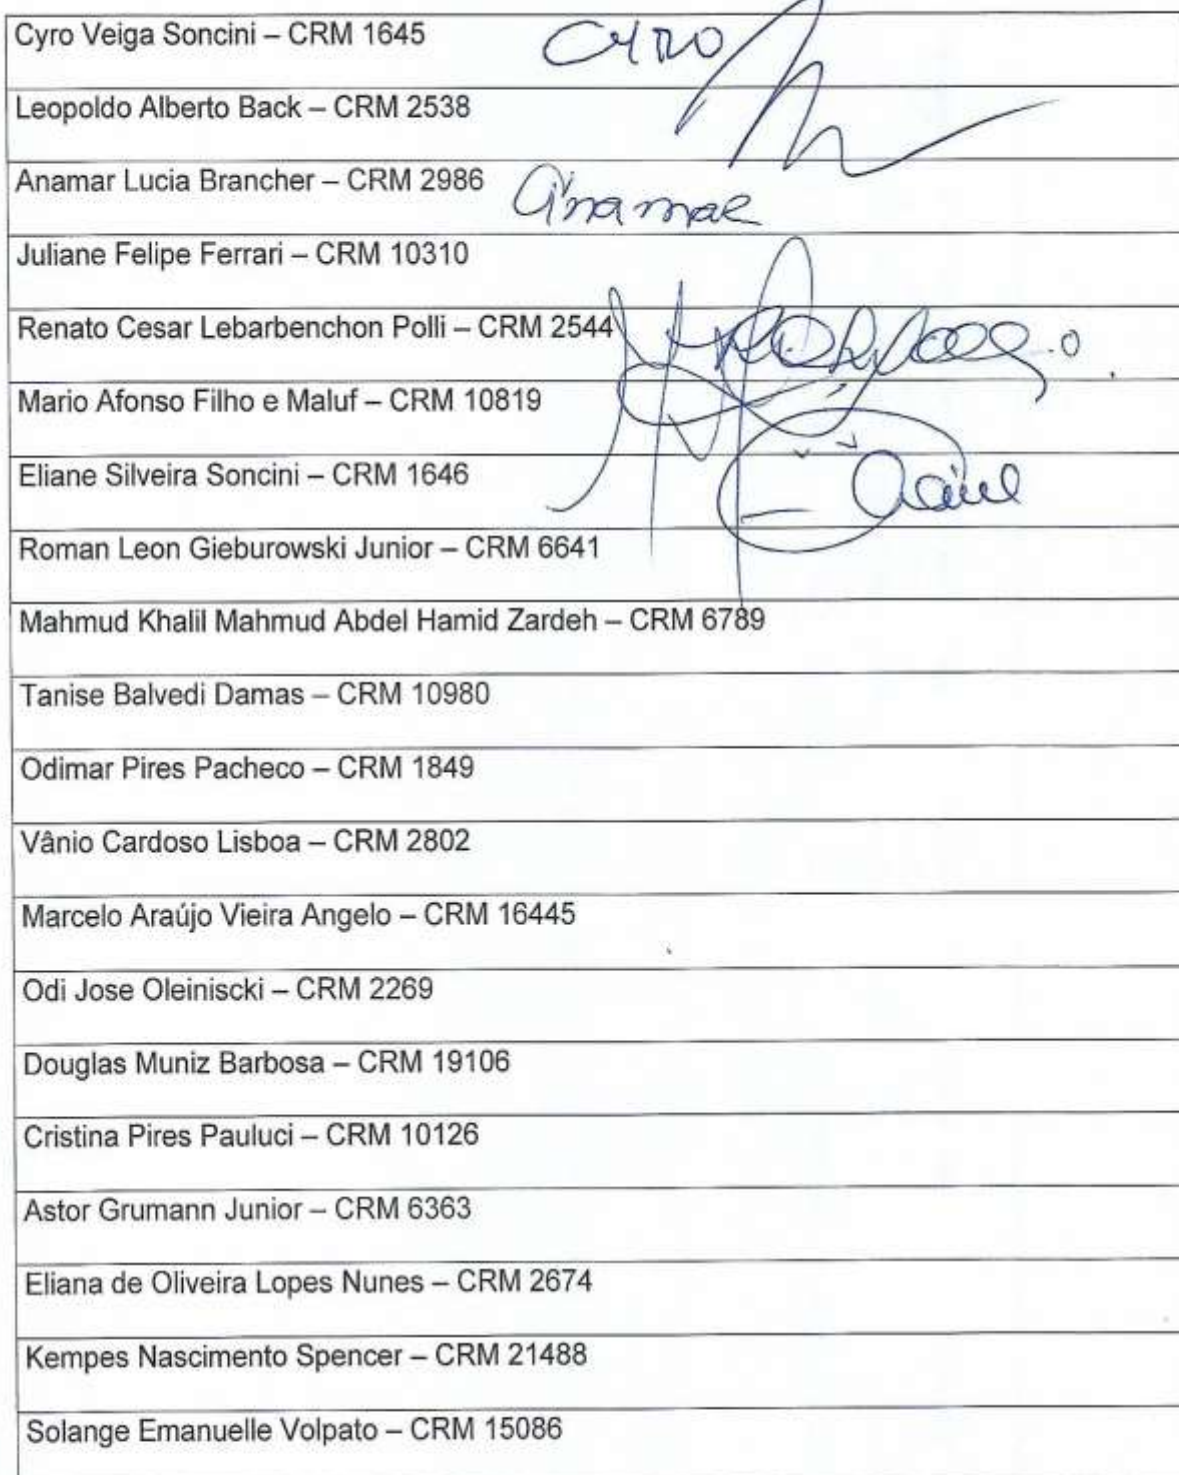 Cyro Veiga Soncini – CRM 1645 CYRO
Leopoldo Alberto Back – CRM 2538
Anamar Lucia Brancher – CRM 2986 Anamar
Juliane Felipe Ferrari – CRM 10310
Renato Cesar Lebarbenchon Polli – CRM 2544
Mario Afonso Filho e Maluf – CRM 10819
Eliane Silveira Soncini – CRM 1646
Roman Leon Gieburowski Junior – CRM 6641
Mahmud Khalil Mahmud Abdel Hamid Zardeh – CRM 6789
Tanise Balvedi Damas – CRM 10980
Odimar Pires Pacheco – CRM 1849
Vânio Cardoso Lisboa – CRM 2802
Marcelo Araújo Vieira Angelo – CRM 16445
Odi Jose Oleiniscki – CRM 2269
Douglas Muniz Barbosa – CRM 19106
Cristina Pires Pauluci – CRM 10126
Astor Grumann Junior – CRM 6363
Eliana de Oliveira Lopes Nunes – CRM 2674
Kempes Nascimento Spencer – CRM 21488
Solange Emanuelle Volpato – CRM 15086